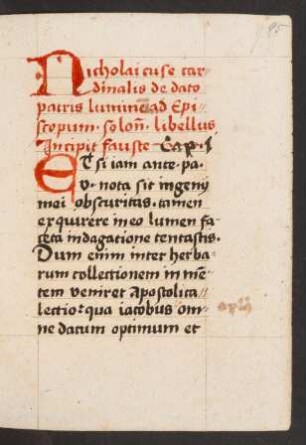 95
Nicholai cuse car-
dinalis de dato
patris luminū ad Epi-
scopum. solon̄. libellus
Incipit fauste Cap. I
ET si iam ante. pa.
v. nota sit ingenij
mei obscuritas. tamen
exquirere ī eo lumen fa
ceta indagatione tentastis.
Dum enim inter herba-
rum collectionem in mē-
tem veniret Apostolica
lectio: qua iacobus om-
ne datum optimum et